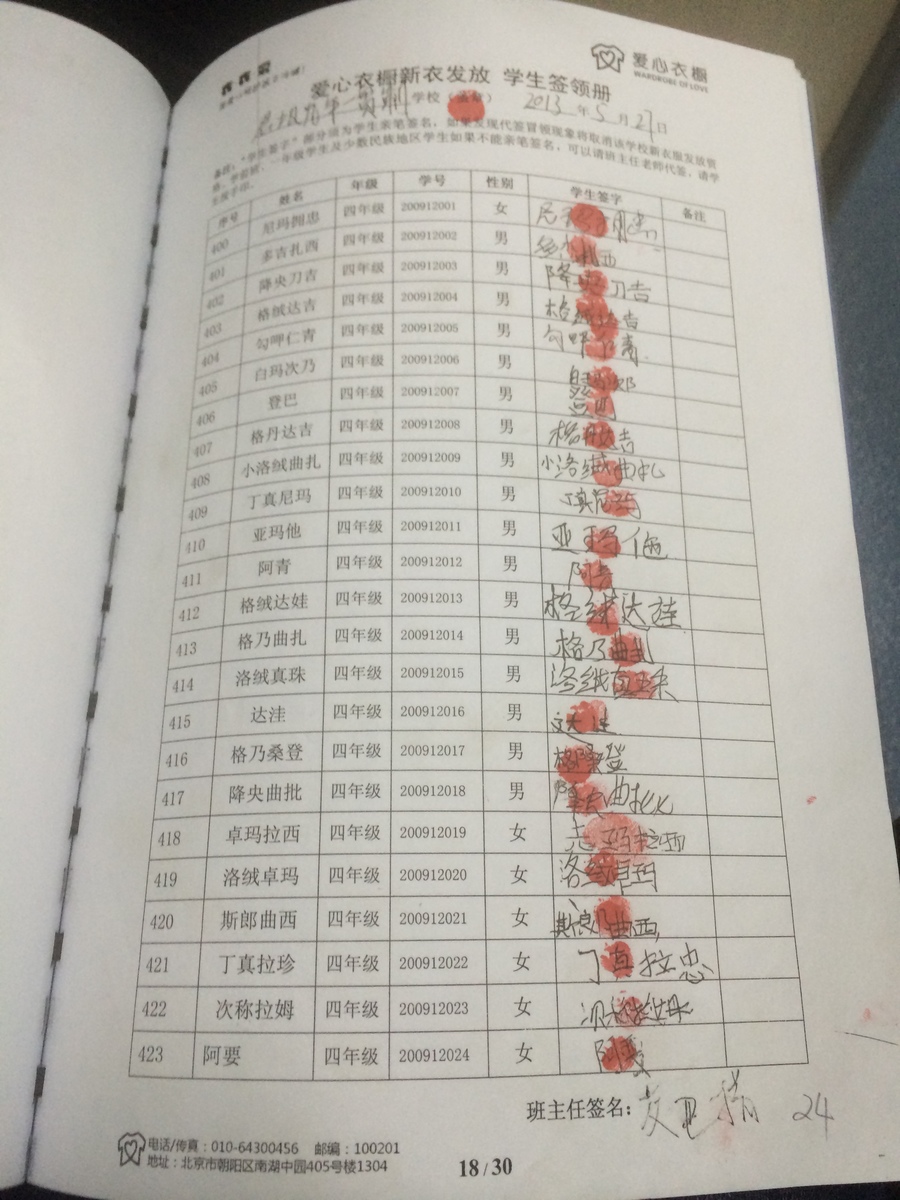 爱心衣橱
WARDROBE OF LOVE
爱心衣橱新衣发放 学生签领册
学校 2013年5月27日
备注:"学生签字"部分须为学生亲笔签名,如果发现代签冒领现象将取消该学校新衣服发放资
格,学前班、一年级学生及少数民族地区学生如果不能亲笔签名,可以请班主任老师代签,请学
生按手印。
序号 姓名 年级 学号 性别 学生签字 备注
400 尼玛拥忠 四年级 200912001 女
401 多吉扎西 四年级 200912002 男
402 降央刀吉 四年级 200912003 男 降央刀吉
403 格绒达吉 四年级 200912004 男 格绒达吉
404 勾呷仁青 四年级 200912005 男 勾呷仁青
405 白玛次乃 四年级 200912006 男
406 登巴 四年级 200912007 男
407 格丹达吉 四年级 200912008 男 格丹达吉
408 小洛绒曲扎 四年级 200912009 男 小洛绒曲扎
409 丁真尼玛 四年级 200912010 男 丁真尼玛
410 亚玛他 四年级 200912011 男 亚玛他
411 阿青 四年级 200912012 男 阿青
412 格绒达娃 四年级 200912013 男 格绒达娃
413 格乃曲扎 四年级 200912014 男 格乃曲扎
414 洛绒真珠 四年级 200912015 男 洛绒真珠
415 达洼 四年级 200912016 男 达洼
416 格乃桑登 四年级 200912017 男
417 降央曲批 四年级 200912018 男 降央曲批
418 卓玛拉西 四年级 200912019 女
419 洛绒卓玛 四年级 200912020 女 洛绒卓玛
420 斯郎曲西 四年级 200912021 女
421 丁真拉珍 四年级 200912022 女 丁真拉忠
422 次称拉姆 四年级 200912023 女
423 阿要 四年级 200912024 女 阿要
班主任签名: 24
电话/传真:010-64300456 邮编:100201
地址:北京市朝阳区南湖中园405号楼1304
18/30